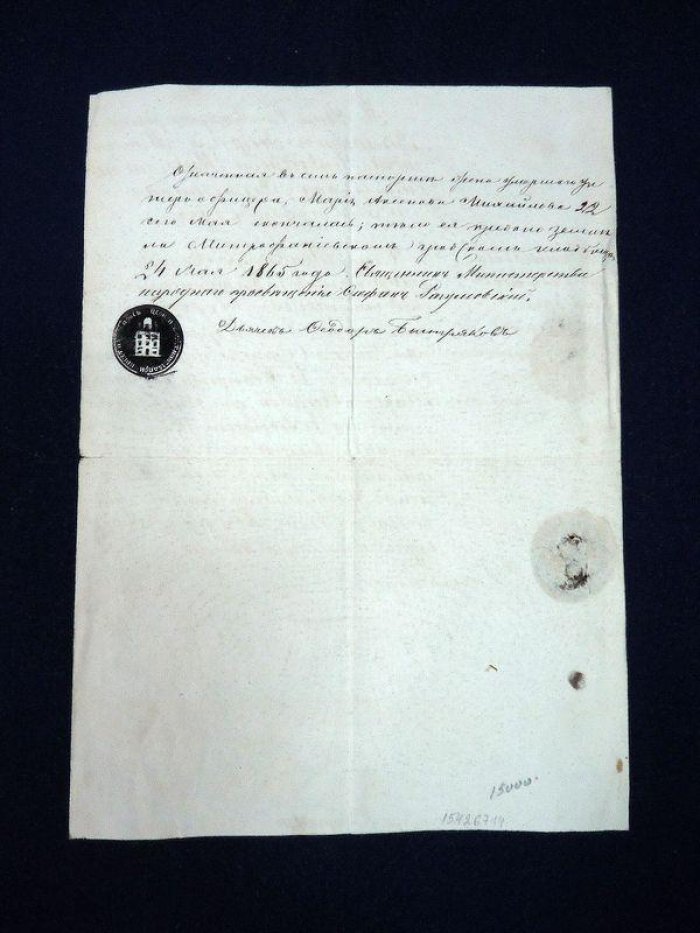 Означенная въ семъ паспортѣ жена умершаго ун
теръ офицера, Марія Аксенова Михайлова 22
сего Мая скончалась; тѣло ея предано землѣ
на Митрофаніевскомъ кладбищѣ
24 Мая 1865 года. Священникъ Министерства
народнаго просвѣщенія Стефанъ
Дьячекъ Ѳеодоръ Быстряковъ
15000.
15426714